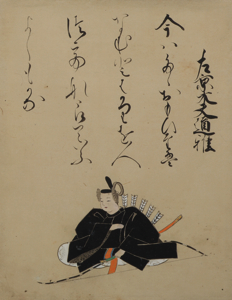 左京大夫道雅
今ハたゝおもひたえ
なむとはかりを人
つてならていふ
よしもかな